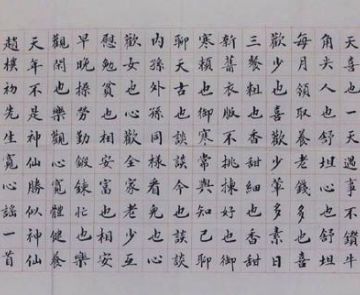 天喜也一天遇事不鑽牛
角尖人也舒坦心也舒坦
每月領取養老錢多也喜
歡少也喜歡少葷多素日
三餐粗也香甜細也香甜
新舊衣服不挑揀好也御
寒賴也御寒常與知己聊
聊天古也談談今也談談
內孫外孫同樣看兒也心
歡女也心歡全家老少互
慰勉貧也相安富也相安
早晚操勞勤鍛鍊忙也樂
觀閑也樂觀心寬體健養
天年不是神仙勝似神仙
趙樸初先生寬心謠一首